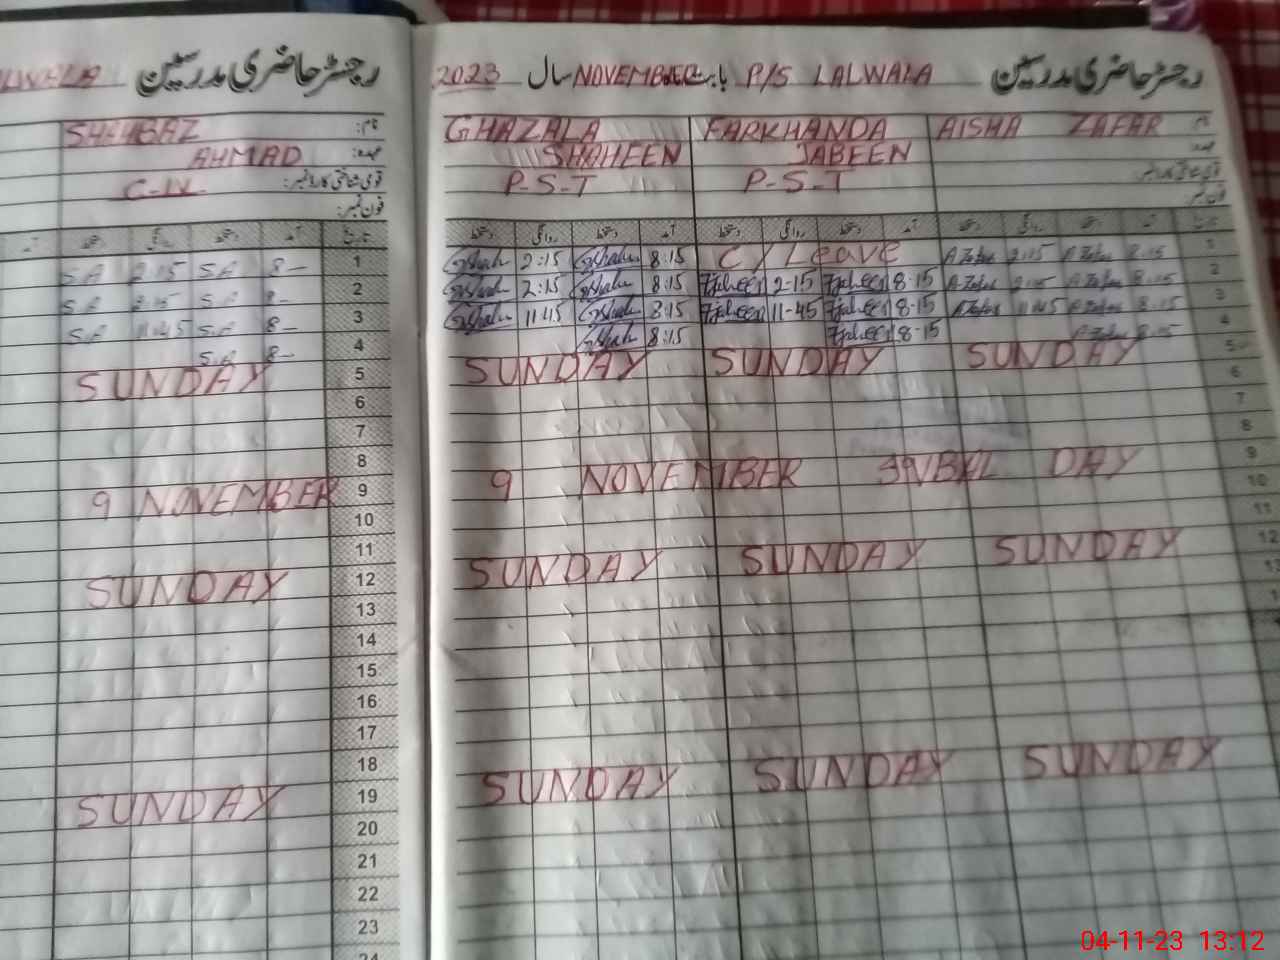 LWALA رجسٹر حاضری مدرسین
SHAHBAZ نام:
AHMAD عہدہ:
C-IV قومی شناختی کارڈ نمبر:
فون نمبر:
آمد دستخط روانگی دستخط آمد تاریخ
S.A 2:15 S.A 8- 1
S.A 2:15 S.A 8- 2
S.A 11:45 S.A 8- 3
S.A 8- 4
SUNDAY 5
6
7
8
9 NOVEMBER 9
10
11
SUNDAY 12
13
14
15
16
17
18
SUNDAY 19
20
21
22
23
24
رجسٹر حاضری مدرسین P/S LALWALA بابت NOVEMBER سال 2023
GHAZALA FARKHANDA AISHA ZAFAR نام
SHAHEEN JABEEN عہدہ
P-S-T P-S-T قومی شناختی کارڈ نمبر:
فون نمبر:
دستخط روانگی دستخط آمد دستخط روانگی دستخط آمد دستخط روانگی دستخط آمد تاریخ
GShah 2:15 GShah 8:15 C/Leave A Zafar 2:15 A Zafar 8:15 1
GShah 2:15 GShah 8:15 Fjabeen 2-15 Fjabeen 8-15 A Zafar 2:15 A Zafar 8:15 2
GShah 11:45 GShah 8:15 Fjabeen 11-45 Fjabeen 8-15 A Zafar 11:45 A Zafar 8:15 3
GShah 8:15 Fjabeen 8-15 A Zafar 8:15 4
SUNDAY SUNDAY SUNDAY 5
6
7
8
9 NOVEMBER DAY 9
10
11
SUNDAY SUNDAY SUNDAY 12
13
SUNDAY SUNDAY SUNDAY
04-11-23 13:12